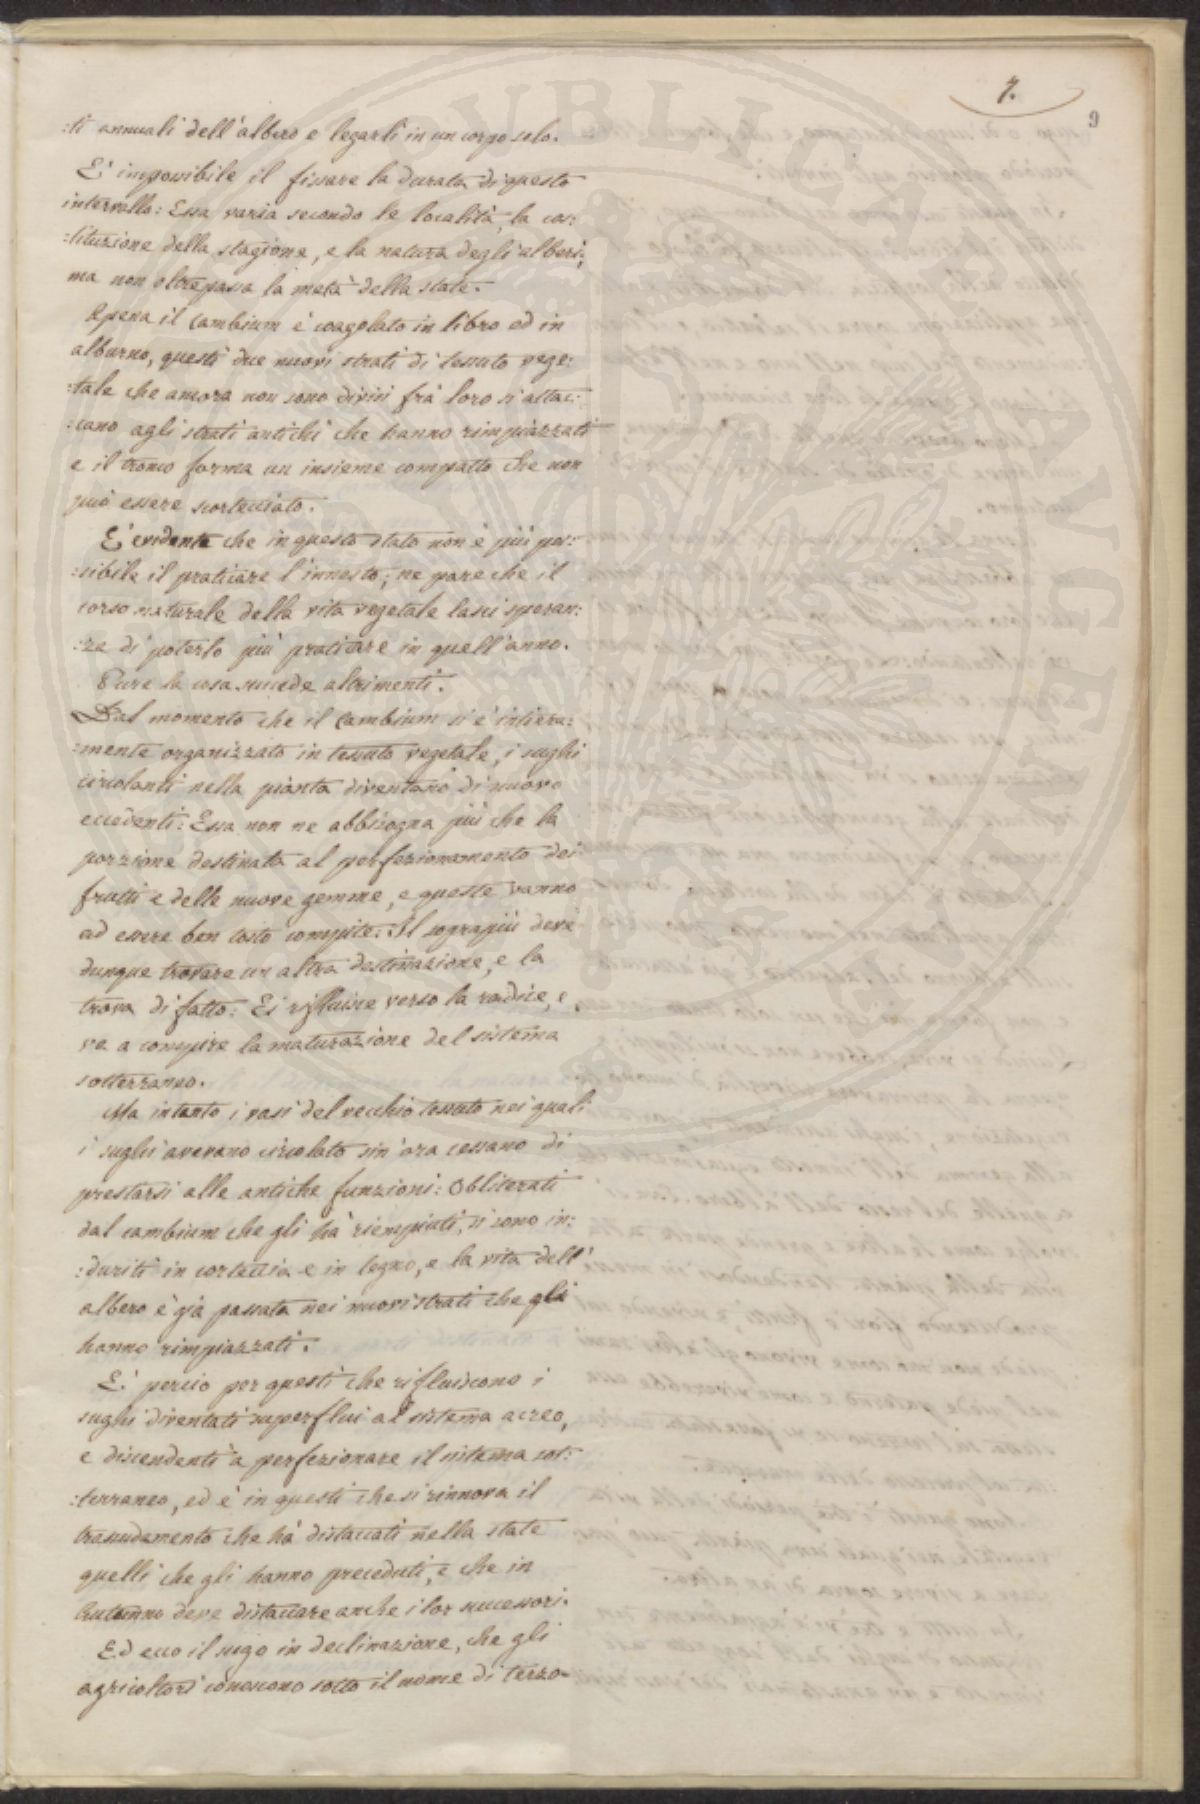 7.
9
:ti annuali dell'albero e legarli in un corpo solo.
E' impossibile il fissare la durata di questo
intervallo: Essa varia secondo le località, la cos:
:tituzione della stagione, e la natura degli alberi;
ma non oltrepassa la metà della state.
Apena il Cambium è coagolato in libro ed in
alburno, questi due nuovi strati di tessuto vege:
:tale che ancora non sono divisi frà loro si attac:
:cano agli strati antichi che hanno rimpiazzati
e il tronco forma un insieme compatto che non
può essere scortecciato.
E' evidente che in questo stato non è più pos:
:sibile il praticare l'innesto; ne pare che il
corso naturale della vita vegetale lasci speran:
:ze di poterlo più praticare in quell'anno.
Pure la cosa succede altrimenti.
Dal momento che il Cambium si è intiera:
:mente organizzato in tessuto vegetale, i sughi
circolanti nella pianta diventano di nuovo
eccedenti: Essa non ne abbisogna più che la
porzione destinata al perfezionamento dei
frutti e delle nuove gemme, e queste vanno
ad essere ben tosto compite: Il soprapiù deve
dunque trovare un altra destinazione, e la
trova di fatto: Ei rifluisce verso la radice, e
va a compire la maturazione del sistema
sotterraneo.
Ma intanto i vasi del vecchio tessuto nei quali
i sughi avevano circolato sin'ora cessano di
prestarsi alle antiche funzioni: Obliterati
dal cambium che gli hà riempiuti, si sono in:
:duriti in corteccia e in legno, e la vita dell'
albero è già passata nei nuovi strati che gli
hanno rimpiazzati.
E' percio per questi che rifluiscono i
sughi diventati superflui al sistema aereo,
e discendenti a perfezionare il sistema sot:
:terraneo, ed è in questi che si rinnova il
trasudamento che hà distaccati nella state
quelli che gli hanno preceduti, e che in
Autunno deve distaccare anche i lor successori.
Ed ecco il sugo in declinazione, che gli
agricoltori conoscono sotto il nome di terzo-
PUBLICAE
AVGENDO